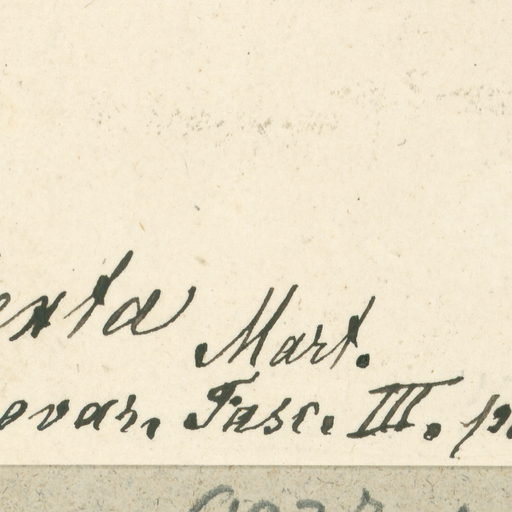 exta Mart.
ovar. Fasc. III. p